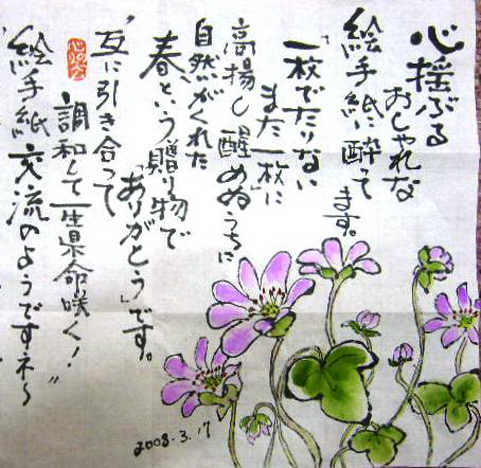 心揺ぶる
おしゃれな
絵手紙に酔って
ます。
「一枚でたりない
また一枚」に
高揚し醒めぬうちに
自然がくれた
春、という贈り物で
「ありがとう」です。
"互に引き合って
調和して一生県命咲く!"
絵手紙交流のようですネ〜
2008.3.17